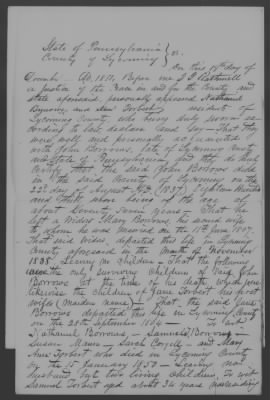 State of Pennsylvania
County of Lycoming } ss.
On this 19th day of
December A.D. 1851, Before me
a Justice of the Peace in and for the County and
State aforesaid, personally appeared Nathaniel
and Torbert resident of
Lycoming County, who being duly sworn ac-
cording to law declare and Say - That they
were well and personally acquainted
with John Borrows, late of Lycoming County
and State of Pennsylvania, and they do hereby
Certify that the said John Borrows died
in the said County of Lycoming on the
22d day of August A.D. 1837, Eighteen Hundred
and Thirty Seven being of the age of
about Seventy years - That he
left a Widow Mary Borrows, his second wife
to whom he was married on the 11th June 1807.
That said widow, departed this life in Lycoming
County aforesaid on the month of November
1835 Leaving no Children - That the following
were the only surviving Children of said John
Borrows at the time of his death who were
likewise the Children of Jane Borrows his first
wife (maiden name) - That, the said Jane
Borrows departed this life in Lycoming County
on the 28th September 1804 - To wit
Nathaniel Borrows - Samuel Borrows -
Susan Mann - Sarah Coryell - and Mary
Ann Torbert who died in Lycoming County
on the 15 January 1850 - Leaving no
husband but two living Children, To wit
Samuel Torbert aged about 34 years